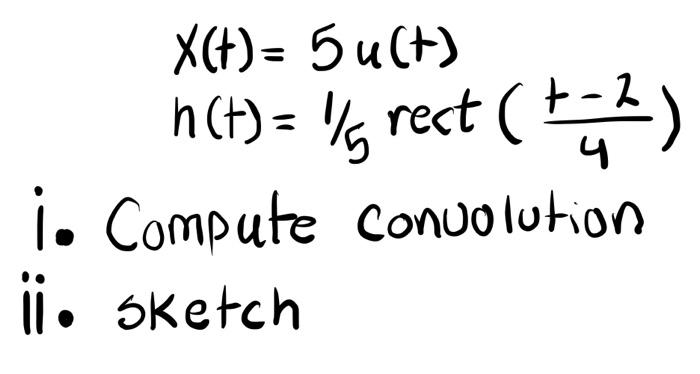 X(t) = 5 u(t)
h(t) = 1/5 rect ( t-2 / 4 )
i. Compute convolution
ii. sketch